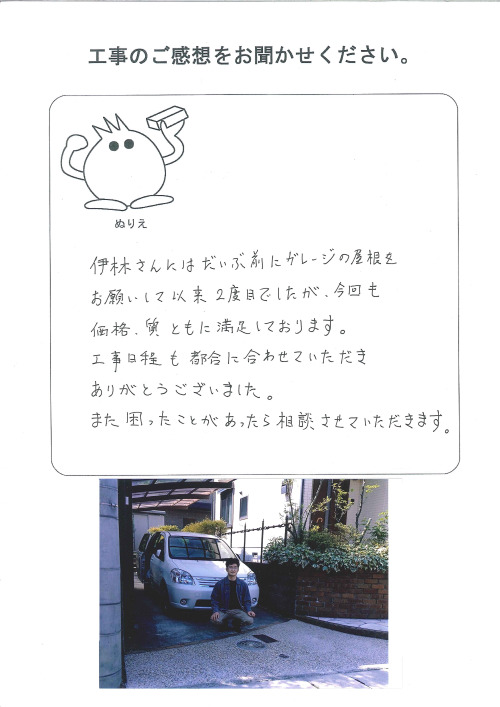 工事のご感想をお聞かせください。
ぬりえ
伊林さんにはだいぶ前にガレージの屋根を
お願いして以来2度目でしたが、今回も
価格、質ともに満足しております。
工事日程も都合に合わせていただき
ありがとうございました。
また困ったことがあったら相談させていただきます。